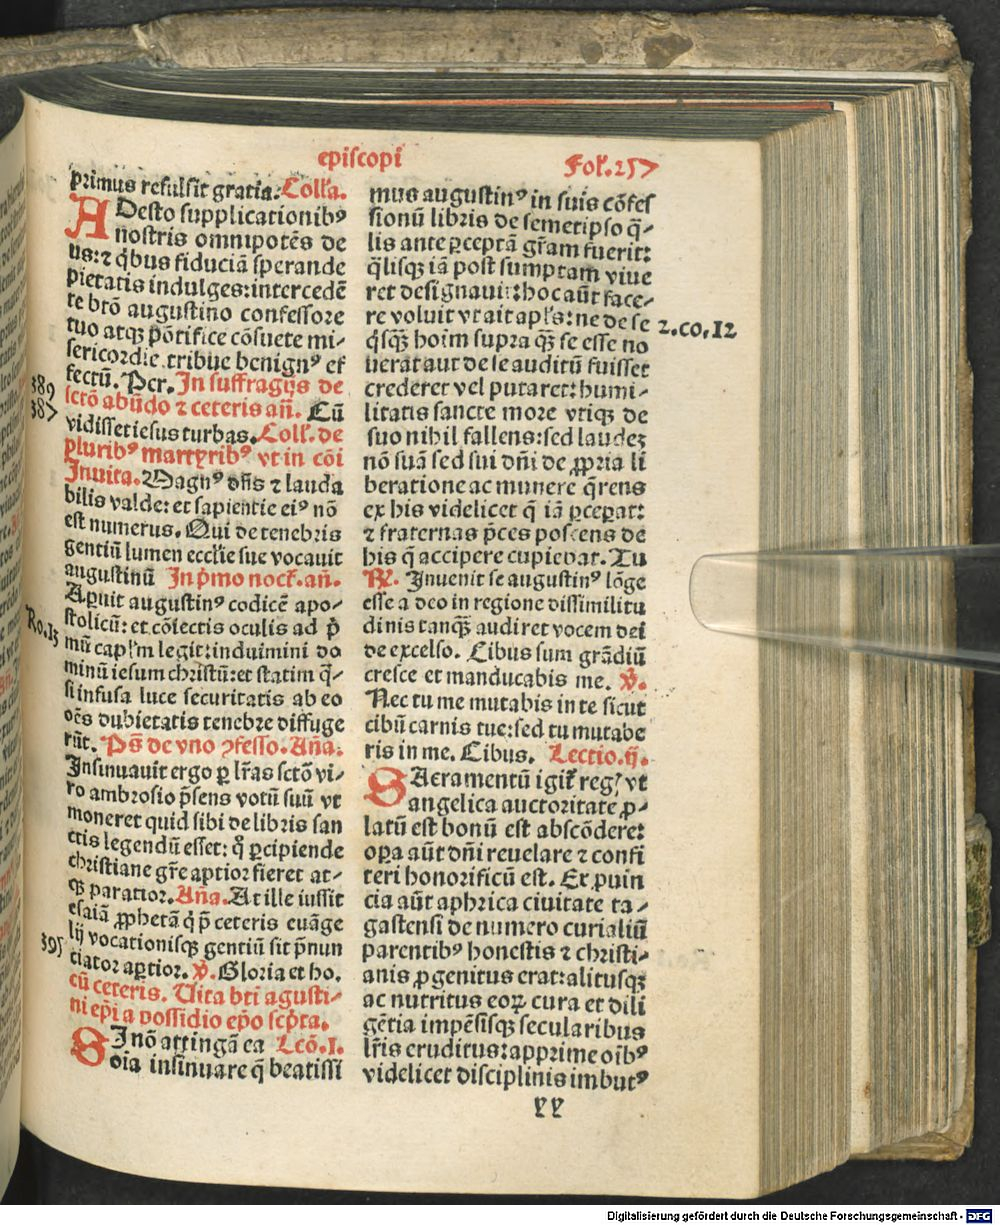 episcopi
Fol.257
primus refulsit gratia. Colla.
ADesto supplicationibꝰ
nostris omnipotēs de
us: ⁊ q̇bus fiduciā sperande
pietatis indulges: intercedē
te btō augustino confessore
tuo atqꝫ pōtifice cōsuete mi⸗
sericordie tribue benignꝰ ef
fectū. Per. In suffragijs de
389
sctō abūdo ⁊ ceteris añ. Cū
387
vidisset iesus turbas. Coll. de
pluribꝰ martyribꝰ vt in cōi
Inuita. Magnꝰ dñs ⁊ lauda
bilis valde: et sapientie eiꝰ nō
est numerus. Qui de tenebris
gentiū lumen ecclie sue vocauit
augustinū In pͥmo nocł. añ.
Aꝑuit augustinꝰ codicē apo⸗
stolicū: et cōiectis oculis ad pͥ
Ro.13
mū capľm legit: induimini do
minū iesum christū: et statim q̄⸗
si infusa luce securitatis ab eo
oēs dubietatis tenebre diffuge
rūt. Ps̄ de vno ꝯfesso. Aña.
Insinuauit ergo ꝑ lr̄as sctō vi⸗
ro ambrosio p̄sens votū suū vt
moneret quid sibi de libris san
ctis legendū esset: qͦ ꝑcipiende
christiane gr̄e aptior fieret at⸗
qꝫ paratior. Aña. At ille iussit
esaiā ꝓphetā q̇ p̄ ceteris euāge
lij vocationisqꝫ gentiū sit p̄nun
395
ciator aꝑtior. ℣. Gloria et ho.
cū ceteris. Uita bti agusti⸗
ni ep̄i a possidio ep̄o scpͥta.
SI nō attingā ea Lcō.1.
oīa insinuare q̄ beatissi
mus augustinꝰ in suis cōfes
sionū libris de semetipso q̄⸗
lis ante ꝑceptā gr̄am fuerit:
q̄lisqꝫ iā post sumptam viue
ret designauit: hoc aūt face⸗
re voluit vt ait apľs: ne de se
2.co.12
q̇sqꝫ hoīm supra qꝫ̄ se esse no
uerat aut de se auditū fuisset
crederet vel putaret: humi⸗
litatis sancte more vtiqꝫ de
suo nihil fallens: sed laudeꝫ
nō suā sed sui dñi de ꝓpria li
beratione ac munere q̄rens
ex his videlicet q̄ iā ꝑceperat:
⁊ fraternas p̄ces poscens de
his q̄ accipere cupiebat. Tu
℟. Inuenit se augustinꝰ lōge
esse a deo in regione dissimilitu
dinis tanqꝫ̄ audiret vocem dei
de excelso. Cibus sum grādiū
cresce et manducabis me. ℣.
Nec tu me mutabis in te sicut
cibū carnis tue: sed tu mutabe
ris in me. Cibus. Lectio.ij.
SAcramentū igiť regꝭ vt
angelica auctoritate ꝓ⸗
latū est bonū est abscōdere:
oꝑa aūt dñi reuelare ⁊ confi
teri honorificū est. Ex ꝓuin
cia aūt aphrica ciuitate ta⸗
gastensi de numero curialiū
parentibꝰ honestis ⁊ christi⸗
anis ꝓgenitus erat: alitusqꝫ
ac nutritus eoꝝ cura et dili
gētia impēsisqꝫ secularibus
lr̄is eruditus: apprime oībꝰ
videlicet disciplinis imbutꝰ
yy
Digitalisierung gefördert durch die Deutsche Forschungsgemeinschaft - DFG